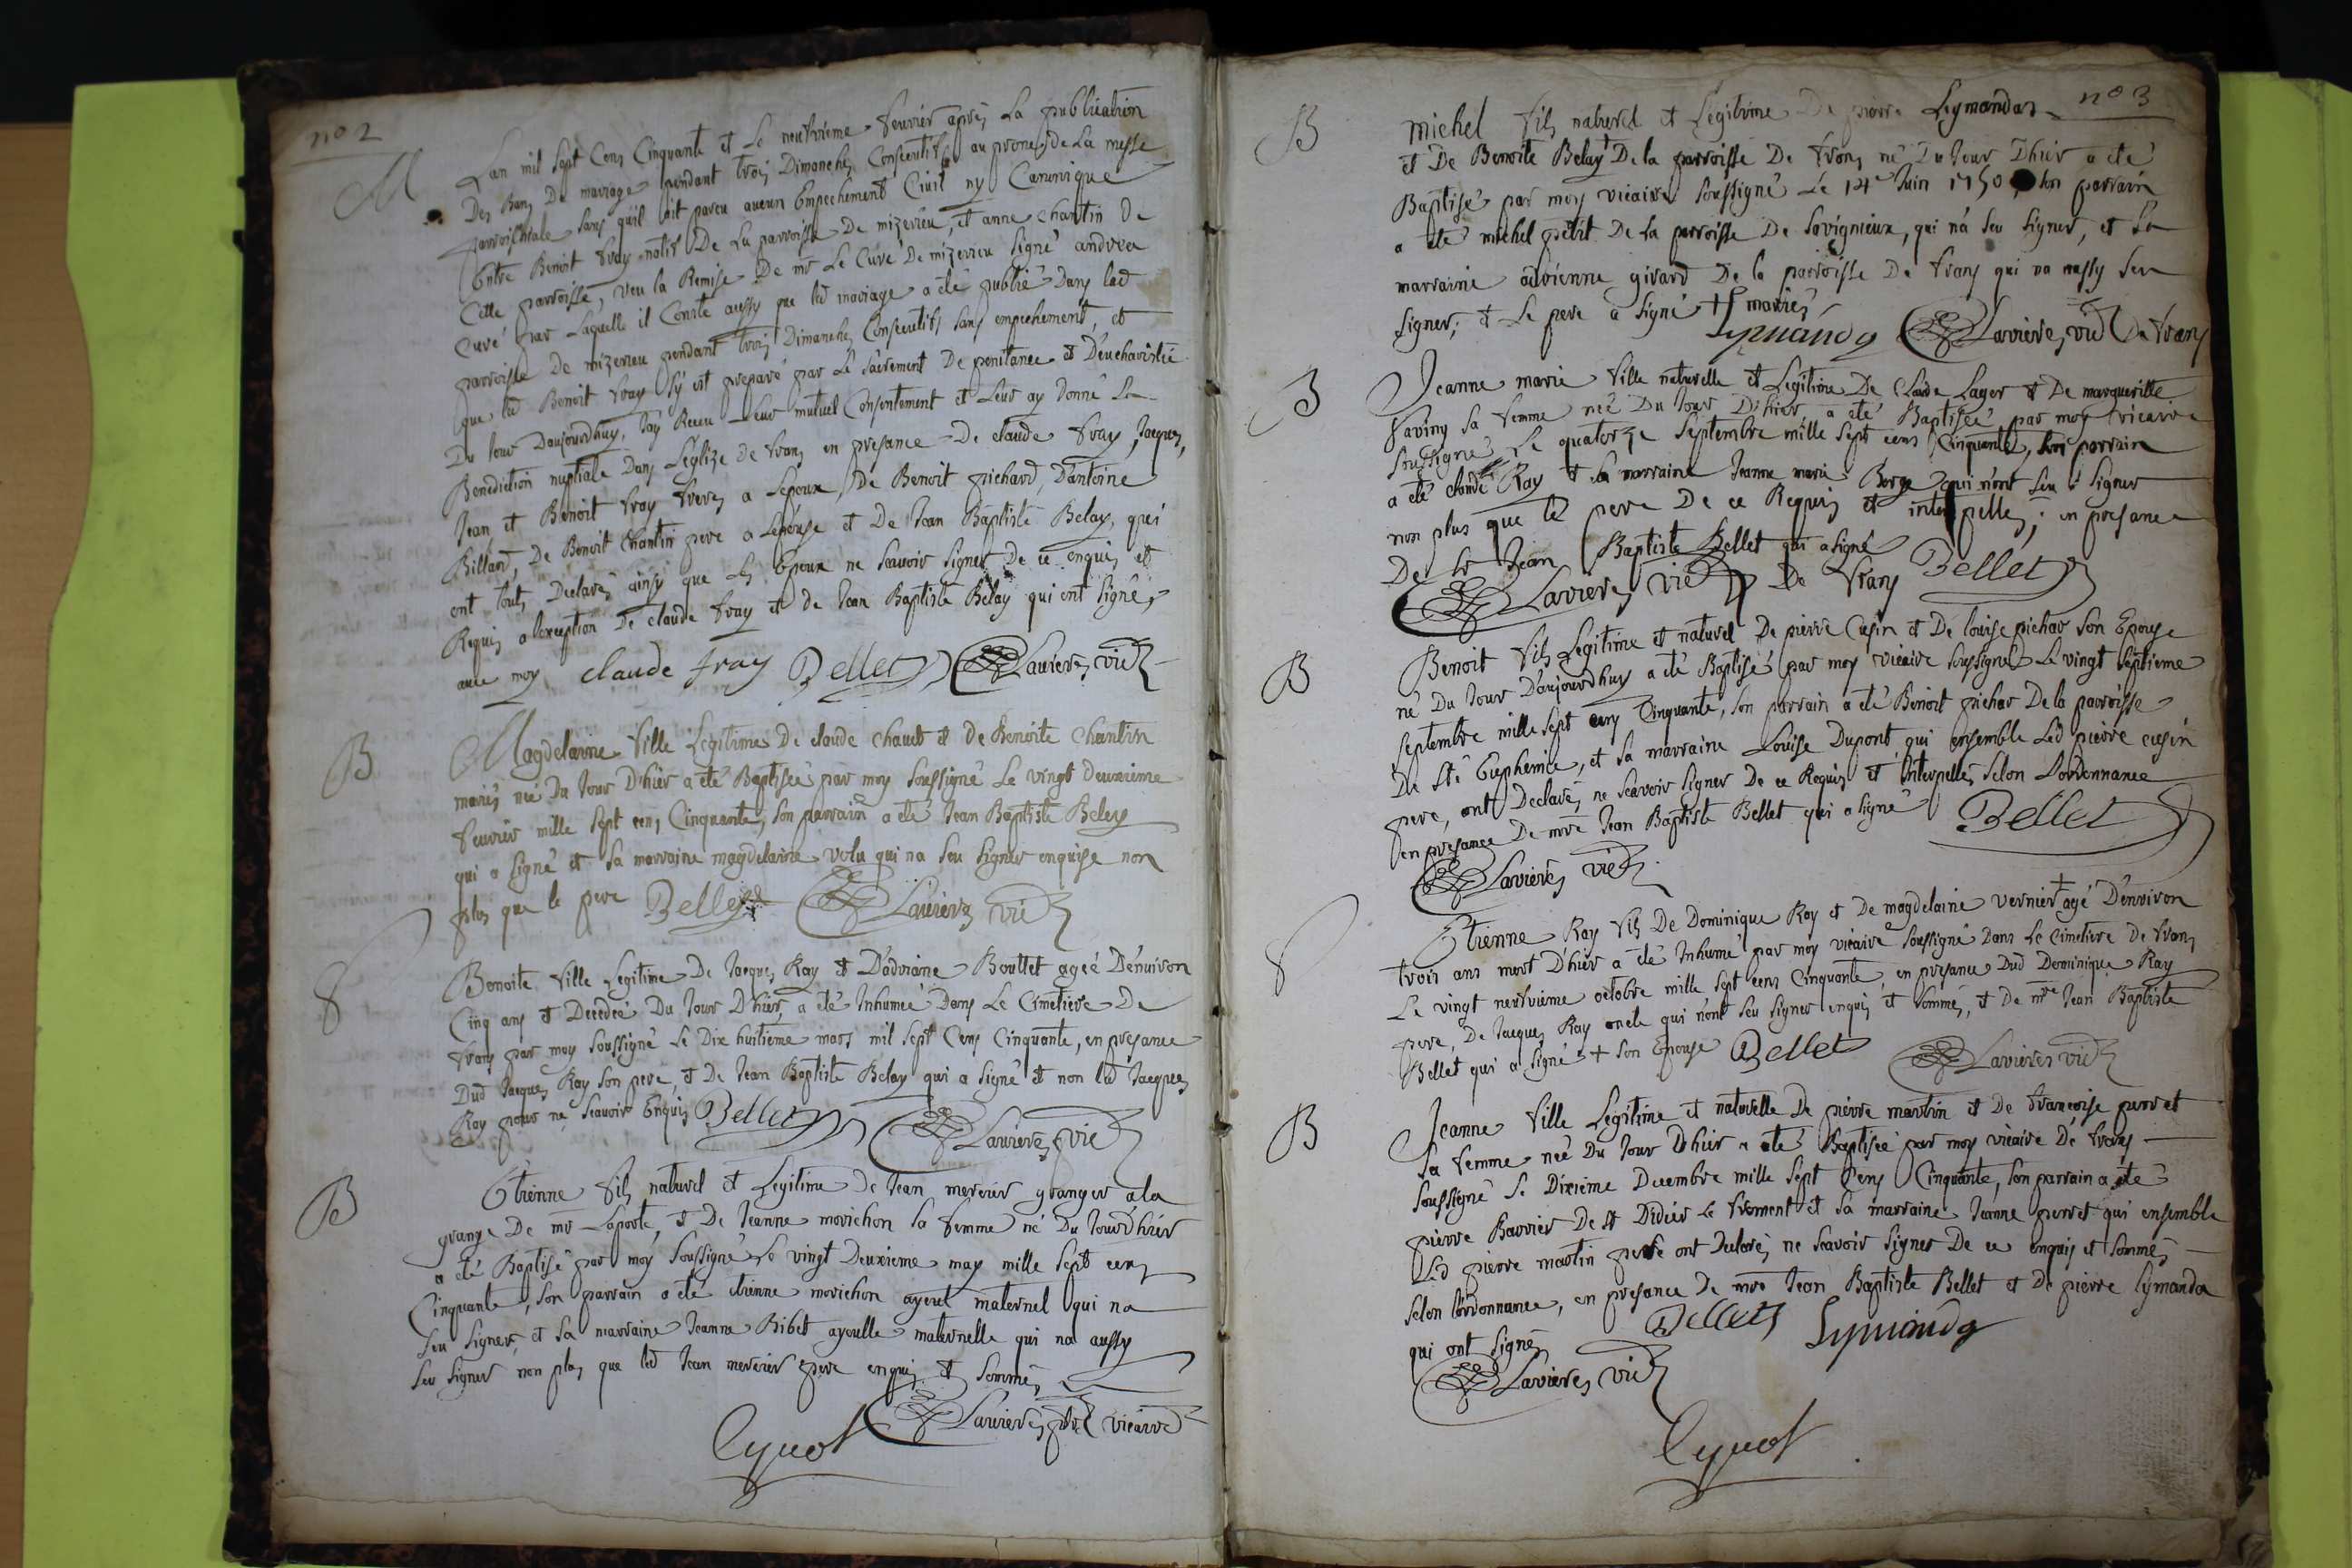 no 2
M
Lan mil sept Cens Cinquante et Le neufvième fevrier après La publication
Des Bans De mariage pendant trois Dimanches Consecutifs au prone de La messe
parroischiale sans quil ait pareu aucun Empechement Civil ny Canonique
Entre Benoit fray natif De La parroisse De mizerieu, et anne chantin De
Cette parroisse, veu la Remise De mr Le Curé De mizerieu signé andrea
Curé par Laquelle il Conste aussy que led mariage a été publié Dans lad
parroisse De mizerieu pendant trois Dimanches Consecutifs sans empechement, et
que led Benoit fray sy est preparé par Le sacrement De penitance et D'eucharistie
Du Jour Daujourdhuy, Jay Receu Leur mutuel Consentement et Leur ay Donné La
Benediction nuptiale Dans L'eglize De frans en presance De claude fray, Jacques,
Jean et Benoit fray freres a Lepoux, De Benoit pichard, D'antoine
Billard, De Benoit Chantin pere a Lepouse et De Jean Baptiste Belay, qui
ont touts Declarés ainsy que Les Epoux ne scauoir signer De ce enquis et
Requis a lexception De claude fray et de Jean Baptiste Belay qui ont signés
avec moy claude fray Bellet Lavieres vic
B
Magdelaine fille Legitime De claude chauet et de Benoite Chantin
mariés née Du Jour D'hier a été Baptisée par moy soussigné Le vingt deuxieme
fevrier mille sept cens Cinquante, son parrain a été Jean Baptiste Beley
qui a signé et sa marraine magdelaine velu qui na seu signer enquise non
plus que le pere Bellet Lavieres vic
Benoite fille Legitime De Jacques Ray et D'adriane Bouttet ageé D'environ
Cinq ans et Decedée Du Jour D'hier, a été Inhumée Dans Le Cimetiere De
frans par moy soussigné Le Dix huitieme mars mil sept Cens Cinquante, en presance
Dud Jacques Ray son pere, et De Jean Baptiste Belay qui a signé et non led Jacques
Ray pour ne scauoir Enquis Bellet Lavieres vic
B
Etienne fils naturel et Legitime de Jean mercier granger a la
grange De mr Laporte, et De Jeanne morichon sa femme né Du Jour D'hier
a été Baptisé par moy soussigné Le vingt Deuxieme may mille sept cens
Cinquante, son parrain a été etienne morichon ayeul maternel qui na
seu signer, et sa marraine Jeanne Ribet ayeulle maternelle qui na aussy
seu signer non plus que led Jean mercier pere enquis et sommés
Lavieres ptre vicaire
no 3
B
Michel fils naturel et Legitime De pierre Leymandas
et De Benoite Belay† De la parroisse De frans né Du Jour D'hier a été
Baptisé par moy vicaire soussigné Le 14e Juin 1750 son parrain
a été michel petit De la parroisse De Savignieux, qui na seu signer, et sa
marraine adrienne girard De la parroisse De frans qui na aussy seu
signer, et Le pere a signé † mariés
Leymanda Lavieres, vic De frans
B
Jeanne marie fille naturelle et Legitime De Claude Lager et De margueritte
Saviny sa femme née Du Jour D'hier, a été Baptisée par moy vicaire
soussigné Le quatorze septembre mille sept cens Cinquante, son parrain
a été claude Ray et sa marraine Jeanne marie Borge qui n'ont seu signer
non plus que le pere De ce Requis et interpellés, en presance
De sr Jean Baptiste Bellet qui a signé
Lavieres vic De frans Bellet
B
Benoit fils Legitime et naturel De pierre Cusin et De louise pichar son Epouse
né Du Jour D'aujourdhuy a été Baptisé par moy vicaire soussigné Le vingt septieme
septembre mille sept cens Cinquante, son parrain a été Benoit pichar De la parroisse
De Ste Euphemie, et sa marraine Louise Dupont qui ensemble Led pierre cusin
pere, ont Declarés ne scavoir signer De ce Requis et Interpellés selon Lordonnance
en presance De mre Jean Baptiste Bellet qui a signé Bellet
Lavieres vic
Etienne Ray fils De Dominique Ray et De magdelaine vernier† agé D'environ
trois ans mort D'hier a été Inhumé par moy vicaire soussigné Dans Le Cimetiere De frans
Le vingt neufvieme octobre mille sept cens Cinquante, en presance Dud Dominique Ray
pere, De Jacques Ray oncle qui n'ont seu signer enquis et sommés, et De mre Jean Baptiste
Bellet qui a signé † son Epouse Bellet Lavieres vic
B
Jeanne fille Legitime et naturelle De pierre martin et De francoise perret
sa femme née Du Jour D'hier a été Baptisée par moy vicaire De frans
soussigné Le Dixieme Decembre mille sept Cens Cinquante, son parrain a été
pierre Barrier De St Didier Le froment et sa marraine Jeanne perret qui ensemble
Led pierre martin pere ont Declarés ne scavoir signer De ce enquis et sommés
selon l'ordonnance, en presance De mre Jean Baptiste Bellet et De pierre Lymanda
qui ont signés Bellet Leymanda
Lavieres vic